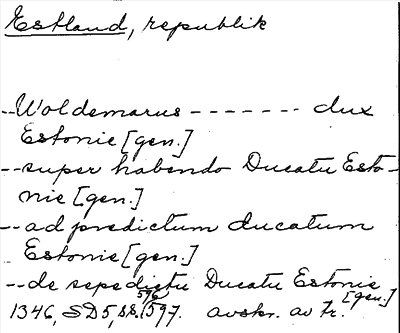 Estland, republik
--Woldemarus ------- dux
Estonie [gen.]
--super habendo Ducatu Esto-
nie [gen.]
--ad predictum ducatum
Estonie [gen.]
--de sepedictu Ducatu Estonie
[gen.]
1346, SD5, s. 596, 597. avskr. av tr.